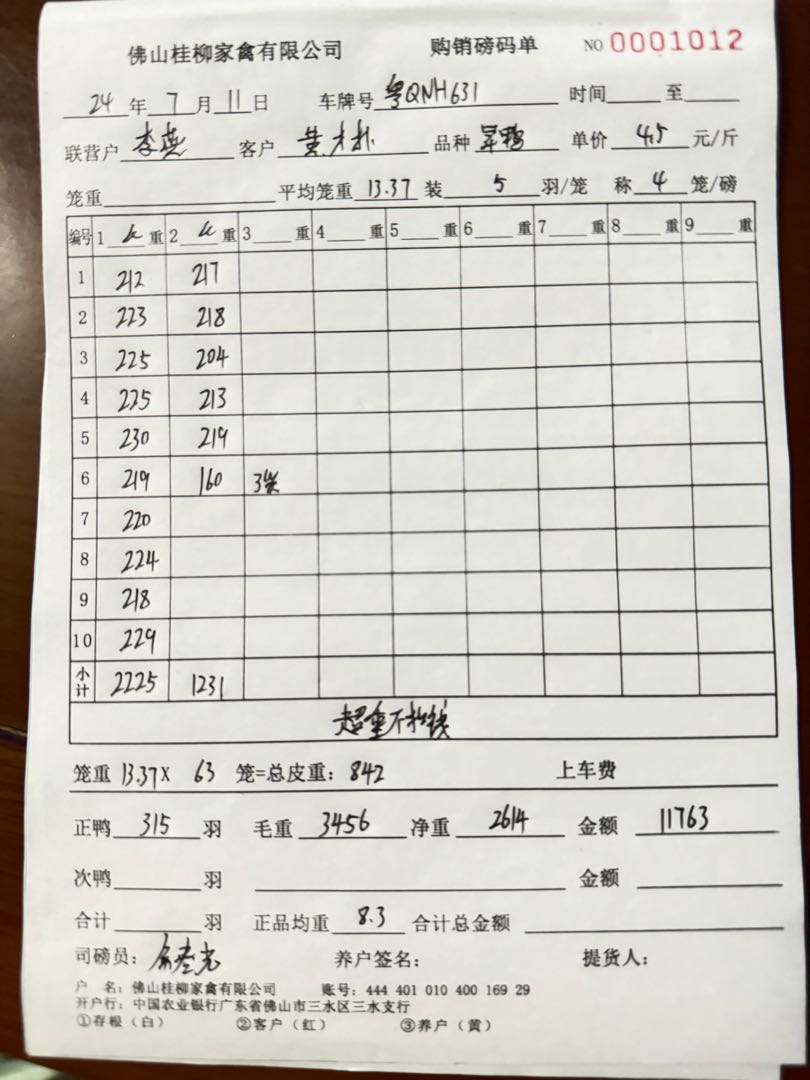 佛山桂柳家禽有限公司 购销磅码单 NO 0001012
24 年 7 月 11 日 车牌号 粤QNH631 时间 至
联营户 李燕 客户 黄 品种 旱鸭 单价 4.5 元/斤
笼重 平均笼重 13.37 装 5 羽/笼 称 4 笼/磅
编号 1 重 2 重 3 重 4 重 5 重 6 重 7 重 8 重 9 重
1 212 217
2 223 218
3 225 204
4 225 213
5 230 219
6 219 160 3笼
7 220
8 224
9 218
10 229
小计 2225 1231
超重不扣钱
笼重 13.37X 63 笼=总皮重: 842 上车费
正鸭 315 羽 毛重 3456 净重 2614 金额 11763
次鸭 羽 金额
合计 羽 正品均重 8.3 合计总金额
司磅员: 养户签名: 提货人:
户 名: 佛山桂柳家禽有限公司 账号: 444 401 010 400 169 29
开户行: 中国农业银行广东省佛山市三水区三水支行
①存根(白) ②客户(红) ③养户(黄)